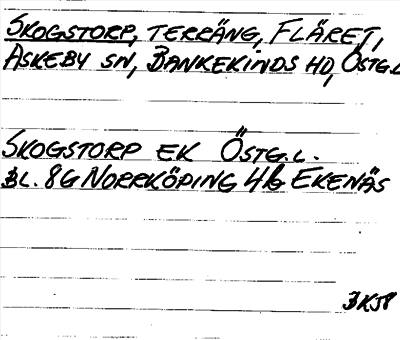 SKOGSTORP, TERRÄNG, FLÄRET,
ASKEBY SN, BANKEKINDS HD, ÖSTG.L
SKOGSTORP EK ÖSTG.L.
BL. 8G NORRKÖPING 4b EKENÄS